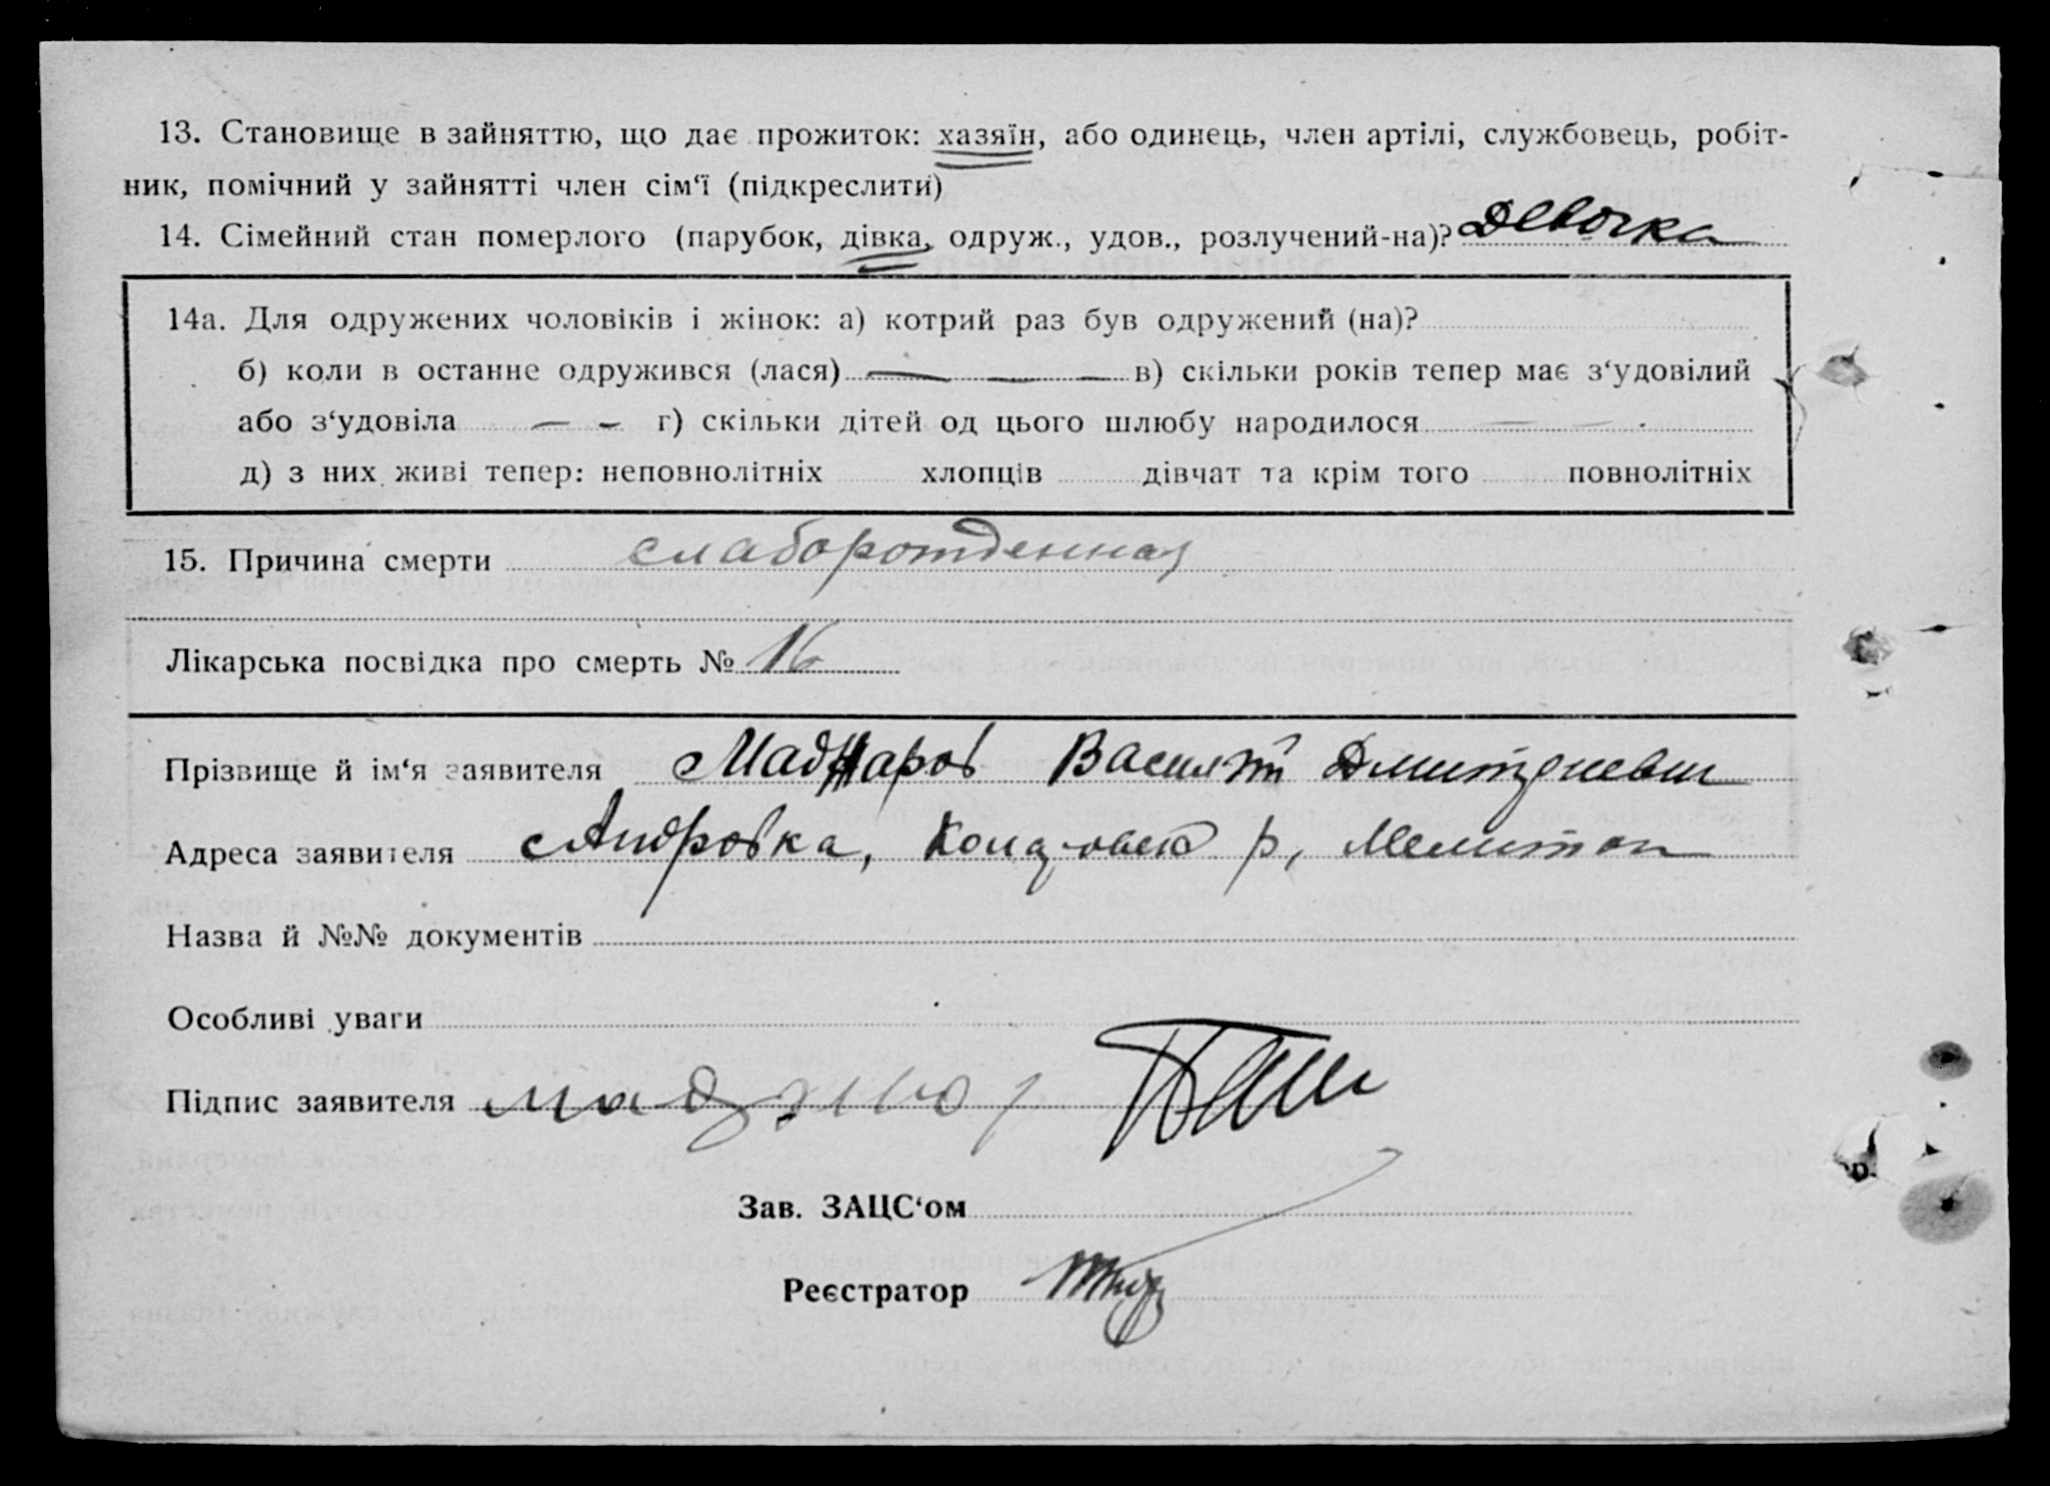 13. Становище в зайняттю, що дає прожиток: хазяїн, або одинець, член артілі, службовець, робіт-
ник, помічний у зайнятті член сім‘ї (підкреслити)
14. Сімейний стан померлого (парубок, дівка, одруж., удов., розлучений-на)? Девочка
14а. Для одружених чоловіків і жінок: а) котрий раз був одружений (на)?
б) коли в останне одружився (лася) — — — в) скільки років тепер має з‘удовілий
або з‘удовіла — — г) скільки дітей од цього шлюбу народилося — —
д) з них живі тепер: неповнолітніх хлопців дівчат та крім того повнолітніх
15. Причина смерти слаборожденная
Лікарська посвідка про смерть № 16
Прізвище й ім‘я заявителя Маджаров Василий Дмитриевич
Адреса заявителя Андровка, р, Мелитоп
Назва й №№ документів
Особливі уваги
Підпис заявителя
Зав. ЗАЦС‘ом
Реєстратор